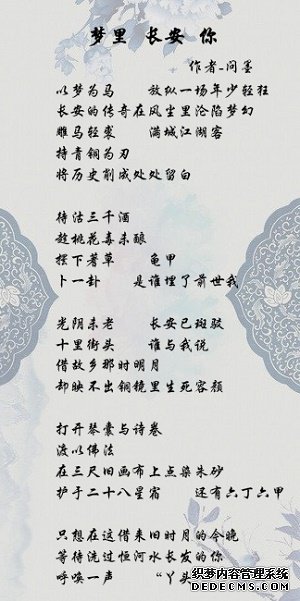 梦里 长安 你
作者-问墨
以梦为马 放纵一场年少轻狂
长安的传奇在风尘里沦陷梦幻
雕马轻裘 满城江湖客
持青铜为刃
将历史削成处处留白
待沽三千酒
趁桃花毒未酿
摆下蓍草 龟甲
卜一卦 是谁埋了前世我
光阴未老 长安已斑驳
十里街头 谁与我说
借故乡那时明月
却映不出铜镜里生死容颜
打开琴囊与诗卷
渡以佛法
在三尺旧画布上点染朱砂
护于二十八星宿 还有六丁六甲
只想在这借来旧时月的今晚
等待洗过恒河水长发的你
呼唤一声 “丫头
织梦内容管理系统
DEDECMS.COM